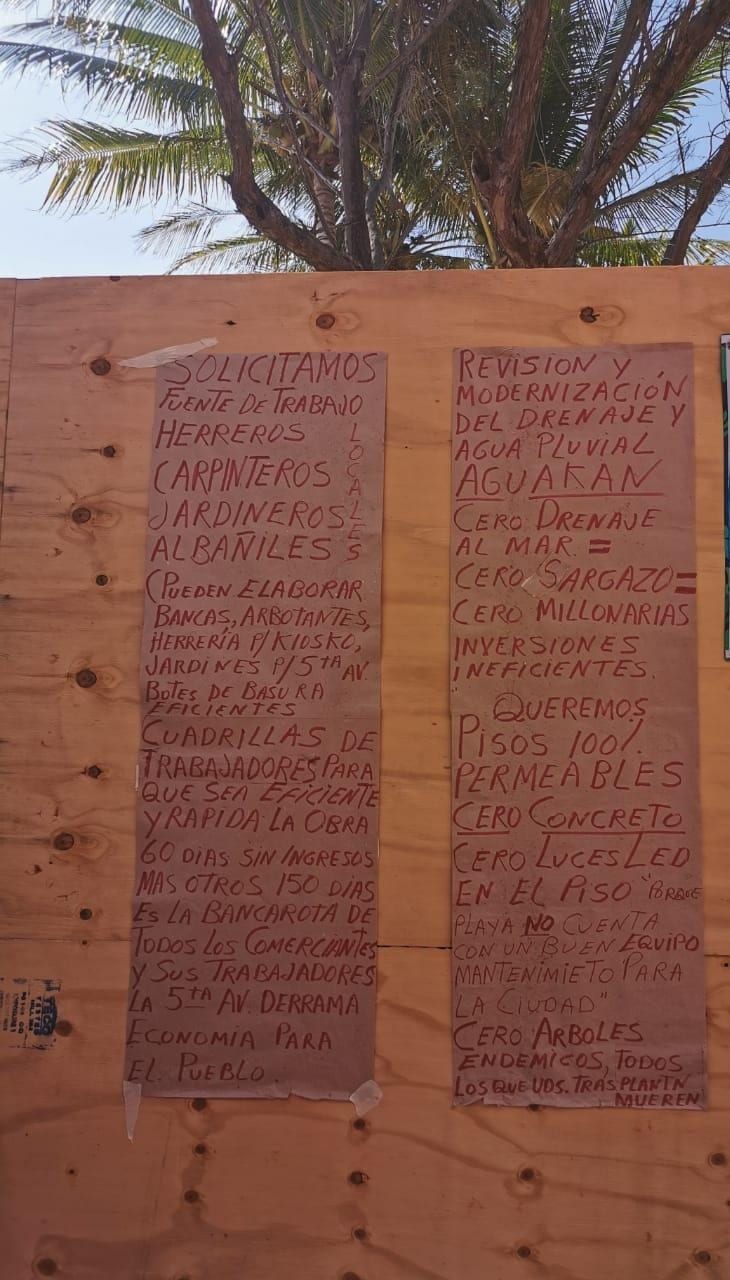 SOLICITAMOS
FUENTE DE TRABAJO
HERREROS
CARPINTEROS
JARDINEROS
ALBAÑILES
LOCALES
(PUEDEN ELABORAR
BANCAS, ARBOTANTES,
HERRERÍA P/KIOSKO,
JARDINES P/5TA AV.
BOTES DE BASURA
EFICIENTES
CUADRILLAS DE
TRABAJADORES PARA
QUE SEA EFICIENTE
Y RAPIDA LA OBRA
60 DIAS SIN INGRESOS
MAS OTROS 150 DIAS
ES LA BANCAROTA DE
TODOS LOS COMERCIANTES
Y SUS TRABAJADORES
LA 5TA AV. DERRAMA
ECONOMIA PARA
EL PUEBLO
REVISION Y
MODERNIZACIÓN
DEL DRENAJE Y
AGUA PLUVIAL
AGUAKAN
CERO DRENAJE
AL MAR =
CERO SARGAZO =
CERO MILLONARIAS
INVERSIONES
INEFICIENTES.
QUEREMOS
PISOS 100%
PERMEABLES
CERO CONCRETO
CERO LUCES LED
EN EL PISO "PORQUE
PLAYA NO CUENTA
CON UN BUEN EQUIPO
MANTENIMIETO PARA
LA CIUDAD"
CERO ARBOLES
ENDEMICOS, TODOS
LOS QUE UDS. TRASPLANTN
MUEREN